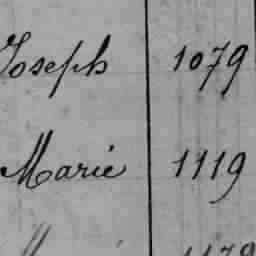 Joseph 1079
Marie 1119